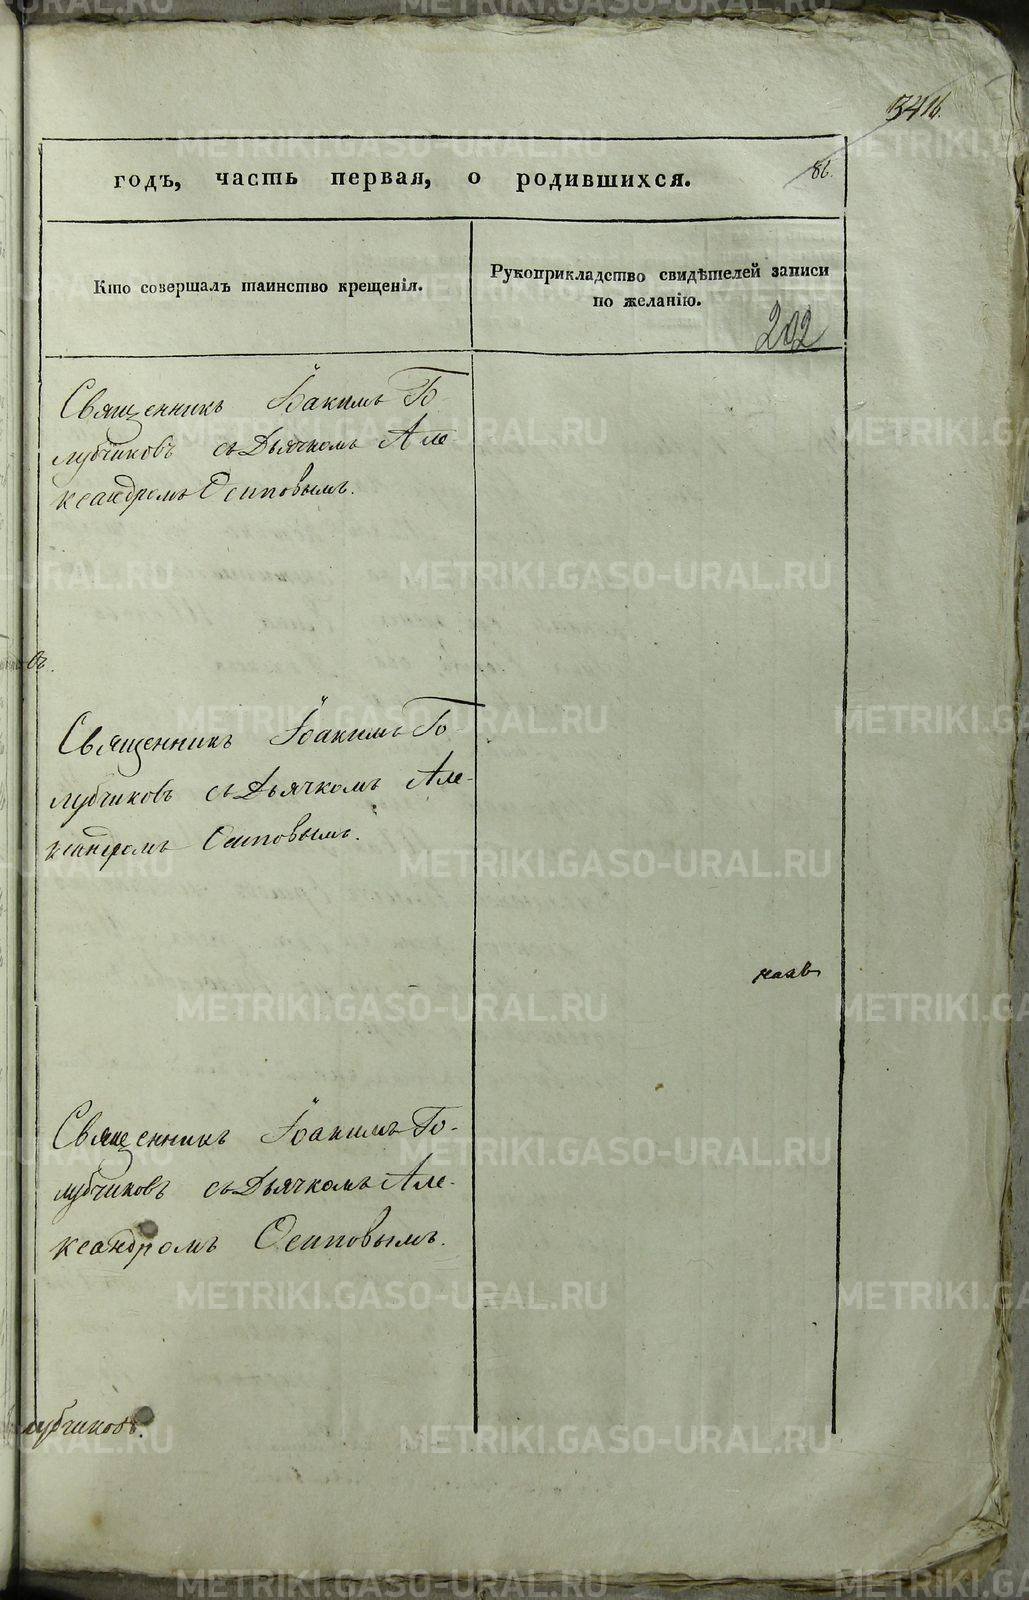 86.
годъ, часть первая, о родившихся.
Кто совершалъ таинство крещенія.
Рукоприкладство свидѣтелей записи
по желанію.
202
Священникъ Іоакимъ Го
лубчиковъ съ Дьячкомъ Але-
ксандромъ Осиповымъ.
Священникъ Іоакимъ Го-
лубчиковъ съ Дьячкомъ Але-
ксандромъ Осиповымъ.
Священникъ Іоакимъ Го-
лубчиковъ съ Дьячкомъ Але-
ксандромъ Осиповымъ.
лубчиковъ.
METRIKI.GASO-URAL.RU